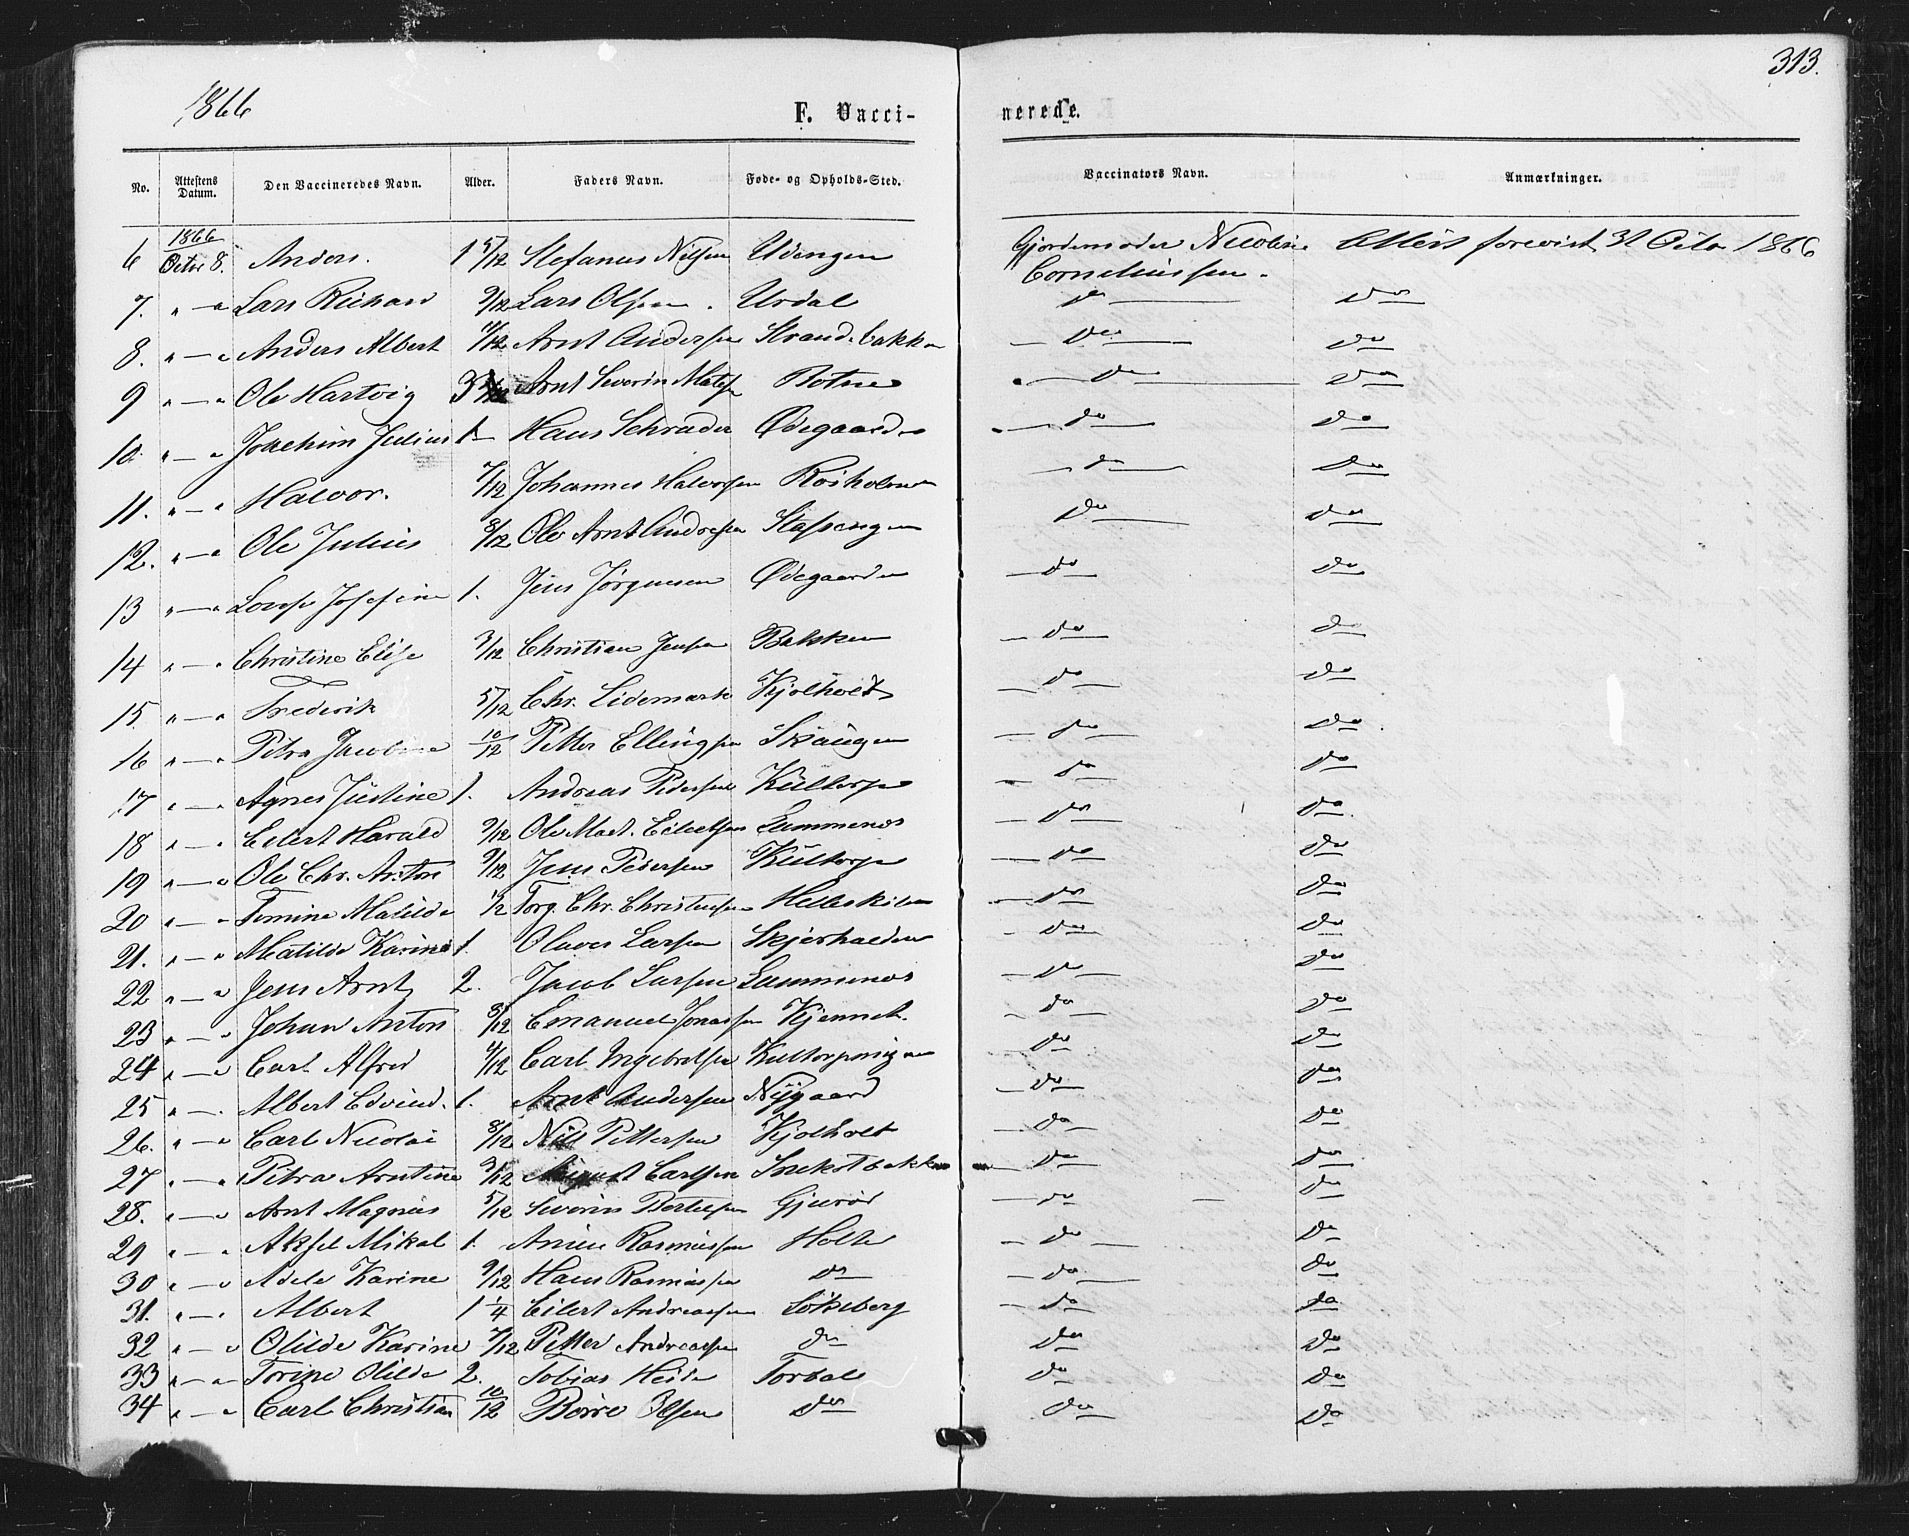 1866 F. Vacci- nerede. 313.
No. Attestens Datum. Den Vaccineredes Navn. Alder. Faders Navn. Føde- og Opholds-Sted. Vaccinators Navn. Anmærkninger.
6 1866 Octbr 8. Anders. 1 5/12 Stefanus Nilsen Udengen Gjordemoder Nicoline Corneliussen. Attest forevist 31 Octbr 1866
7. " — " Lars Richard 9/12 Lars Olsen. Urdal do do
8. " — " Anders Albert 11/12 Arnt Andersen Strandbakken do do
9 " — " Ole Hartvig 3 Arnt Severin Rotne do do
10. " — " Joachim Julius 1 Hans Schrader Ødegaarden do do
11. " — " Halvor. 7/12 Johannes Halvorsen Rosholmen do do
12. " — " Ole Julius 8/12 Ole Arnt Andresen Stafsengen do do
13 " — " Lovise Josefine 1. Jens Jørgensen Ødegaarden do do
14 " — " Christine Elise 3/12 Christian Jensen Bakken do do
15. " — " Frederik 5/12 Chr. Lidemark Kjølholt do do
16 " — " Petra Jacobine 10/12 Petter Ellingsen Skaugen do do
17 " — " Agnes Justine 1. Andreas Pedersen Kultorp do do
18 " — " Eilert Harald 9/12 Ole Mart. Eilertsen Lammenes do do
19 " — " Ole Chr. Anton 9/12 Jens Pedersen Kultorp do do
20 " — " Tomine Matilde 1/2 Torg. Chr. Christensen Helleskilen do do
21. " — " Matilde Karine 1. Olaves Larsen Skjerhalden do do
22 " — " Jens Arnt 2. Jacob Larsen Lammenes do do
23 " — " Johan Anton 8/12 Emanuel Jonassen Kjennet. do do
24 " — " Carl Alfred 4/12 Carl Ingebretsen do do
25 " — " Albert Edvind. 1. Arnt Andersen Nygaard do do
26. " — " Carl Nicolai 8/12 Nils Pettersen Kjølholt do do
27 " — " Petra Arntine 9/12 August Carlsen Snekotbakken do do
28. " — " Arnt Magnus 5/12 Severin Bertelsen Gjurød do do
29 " — " Aksel Mikal 1. Rasmussen Holte do do
30 " — " Adele Karine 9/12 Hans Rasmussen do do do
31. " — " Albert 1 1/4 Eilert Andreassen Løkeberg do do
32 " — " Olilde Karine 7/12 Petter Andreassen do do do
33 " — " Torine Olilde 2. Tobias Heide Tordal do do
34 " — " Carl Christian 10/12 Børre Olsen do do do